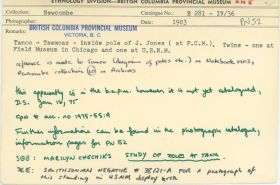 ETHNOLOGY DIVISION—BRITISH COLUMBIA PROVINCIAL MUSEUM
Collector: Newcombe Catalogue No. B 281 - IV/36
Place: Date: 1903 PN 52
Remarks: BRITISH COLUMBIA PROVINCIAL MUSEUM
VICTORIA, B. C.
Tanoo - Tsemaos - inside pole of J. Jones (at F.C.M.), Twins - one at
Field Museum in Chicago and one at U.S.N.M.
reference is made to Tanoo (diagram of poles etc.) in Notebook 1903,
Newcombe collection in Archives
this apparently is the b.c.p.m. however it is not yet catalogued,
D.S. Jan 15, 75
CPN # acc. no. 1975-55:A
Further information can be found in the photograph catalogue,
information pages for PN 52
SEE: MARILYN CHECHIK'S STUDY OF POLES AT TANU.
SEE: SMITHSONIAN NEGATIVE # 38121-A FOR A photograph of
this standing in USNM display area